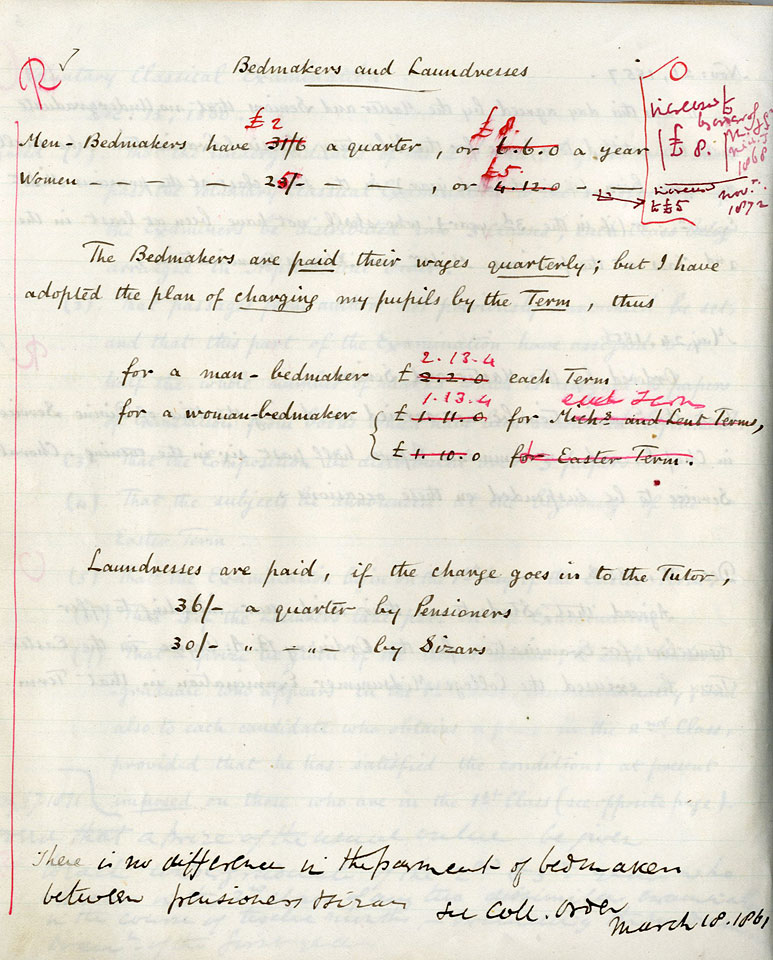 R
Bedmakers and Laundresses
£ 2
£ 8.
Men - Bedmakers have 31/6 a quarter, or 6.6.0 a year
£5
Women — — — — 23/- — — — ; or 4.12.0 -
increased to
by order of
£ 8.
1868
increased
to £5
Novr.
1872
The Bedmakers are paid their wages quarterly; but I have
adopted the plan of charging my pupils by the Term, thus
2.13.4
for a man-bedmaker £ 2.2.0 each Term
1.13.4 each Term
for a woman-bedmaker { £ 1.11.0 for Michs and Lent Terms,
£ 1.10.0 for Easter Term.
Laundresses are paid, if the charge goes in to the Tutor,
36/- a quarter by Pensioners
30/- „ — „ — by Sizars
There is no difference in the payment of bedmakers
between pensioners & sizars See Coll. Order
March 18. 1861